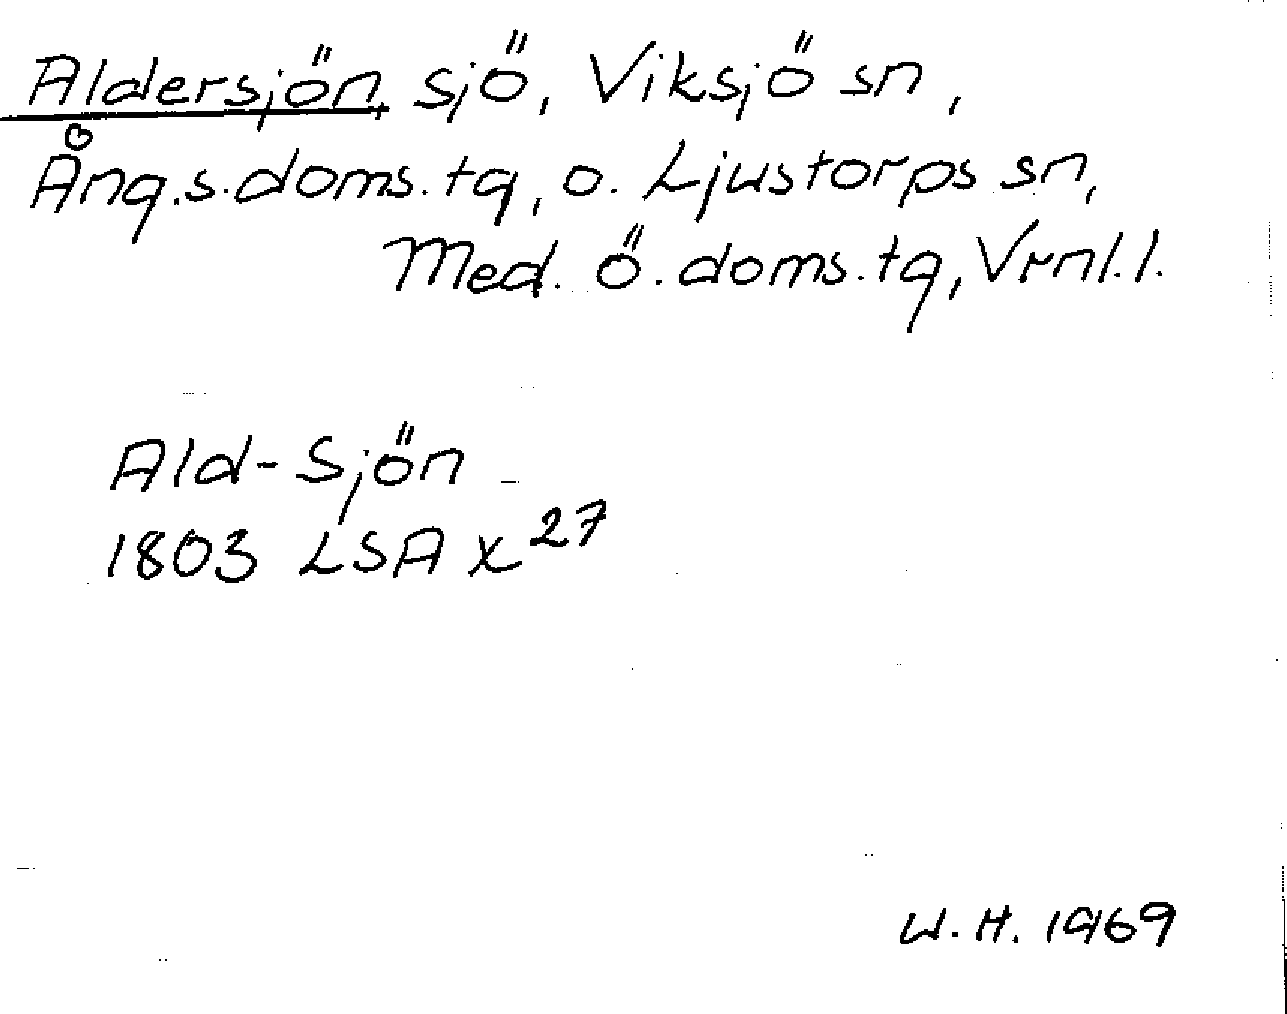 Aldersjön, sjö, Viksjö sn,
Ång.s.doms.tg, o. Ljustorps sn,
Med. ö. doms.tg, Vrnl.l.
Ald-Sjön
1803 LSA X 27
W.H. 1969